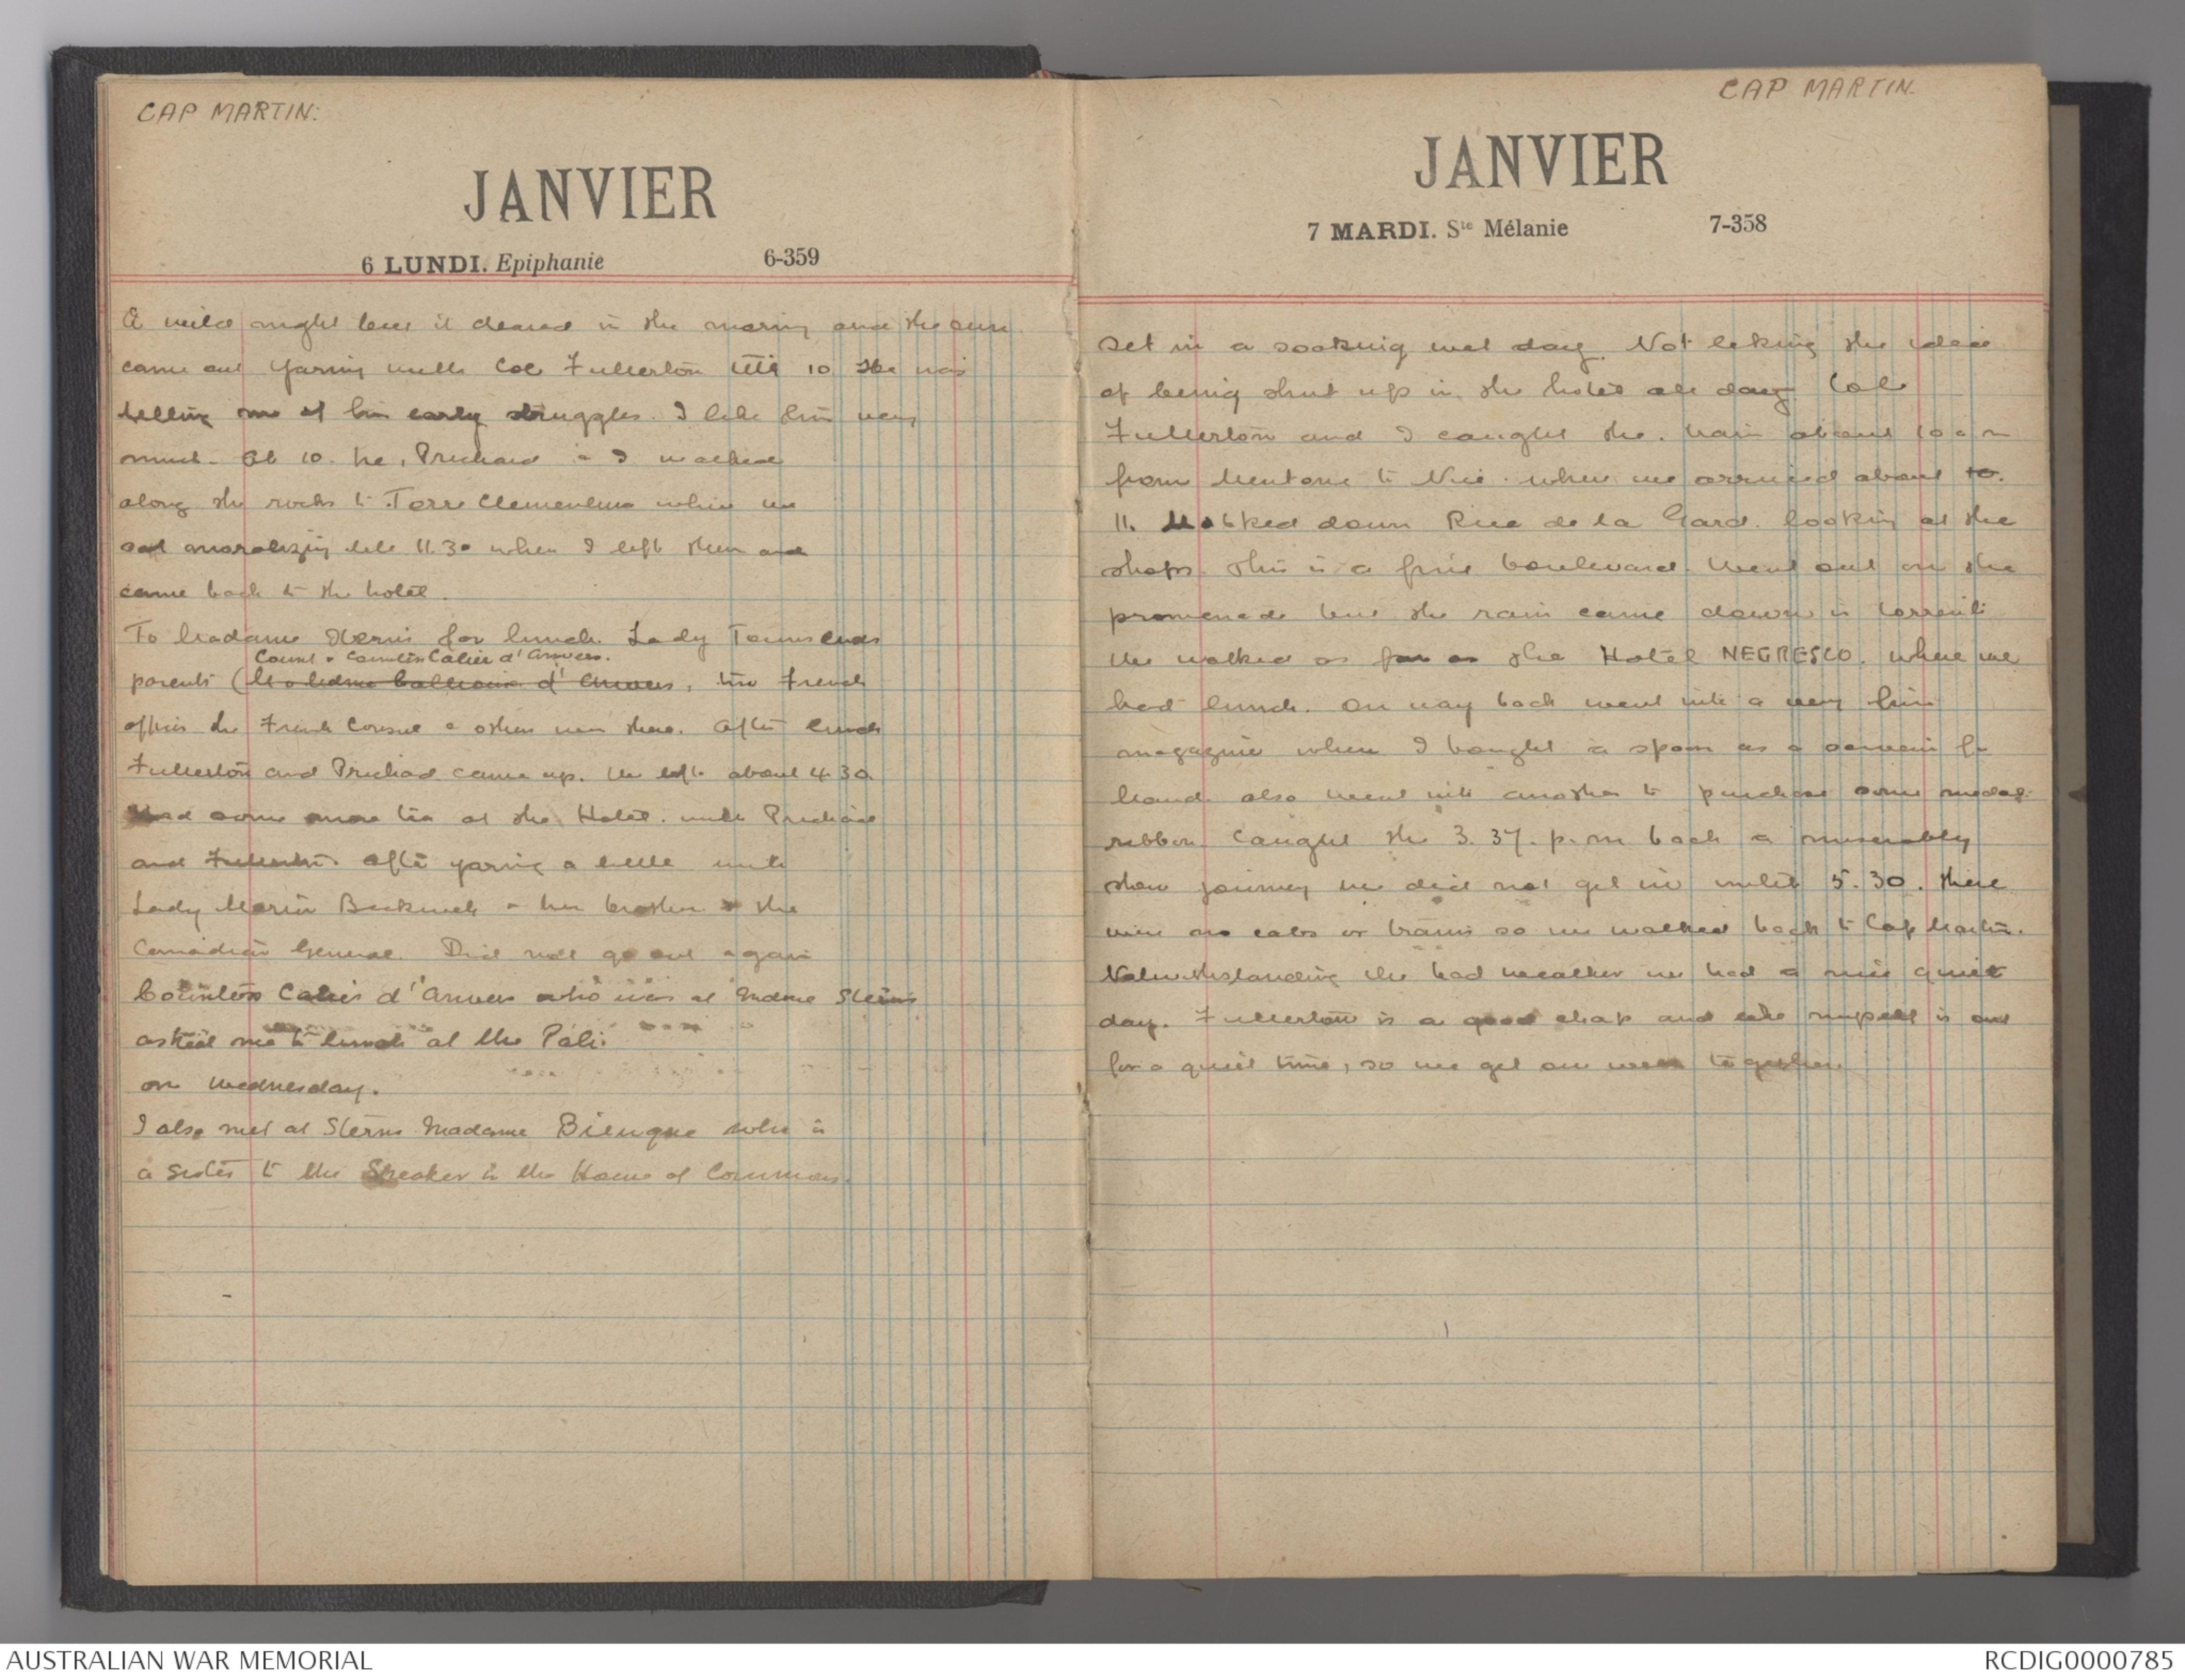 CAP MARTIN:
JANVIER
6 LUNDI. Epiphanie 6-359
A wild night but it cleared in the morning and the sun
came out yarning with Col Fullerton till 10 he was
telling me of his early struggles. I like him very
much. At 10. he, Prichard & I walked
along the rocks to Torre Clementina where we
sat moralizing till 11.30 when I left them and
came back to the hotel.
To Madame Sterns for lunch. Lady Townsends
Count & Comtess Cahen d'Anvers.
parents ( d'Anvers, two French
officers the French Consul & others were there. After lunch
Fullerton and Prichard came up. We left about 4.30.
Had some more tea at the Hotel. with Prichard
and Fullerton. After yarning a little with
Lady & her brother & the
Canadian General. Did not go out again
Countess Cahen d'Anvers who was at Mdme Sterns
asked me to lunch at the
on Wednesday.
I also met at Sterns Madame who is
a sister to the Speaker in the House of Commons.
CAP MARTIN.
JANVIER
7 MARDI. Ste Mélanie 7-358
Set in a soaking wet day. Not liking the idea
of being shut up in the hotel all day Col
Fullerton and I caught the train about 10 a m
from Mentone to Nice. where we arrived about 10.
11. Walked down Rue de la Gard. looking at the
shops. This is a fine boulevard. Went out on the
promenade but the rain came down in torrents
We walked as far as the Hotel NEGRESCO. where we
had lunch. On way back went into a very fine
magazine where I bought a spoon as a souvenir for
Maud. also went into another to purchase some medal
ribbon. Caught the 3.37. p.m back a miserably
slow journey we did not get in until 5.30. There
were no cabs or trams so we walked back to Cap Martin.
Notwithstanding the bad weather we had a nice quiet
day. Fullerton is a good chap and like myself is out
for a quiet time, so we get on well together.
AUSTRALIAN WAR MEMORIAL
RCDIG0000785